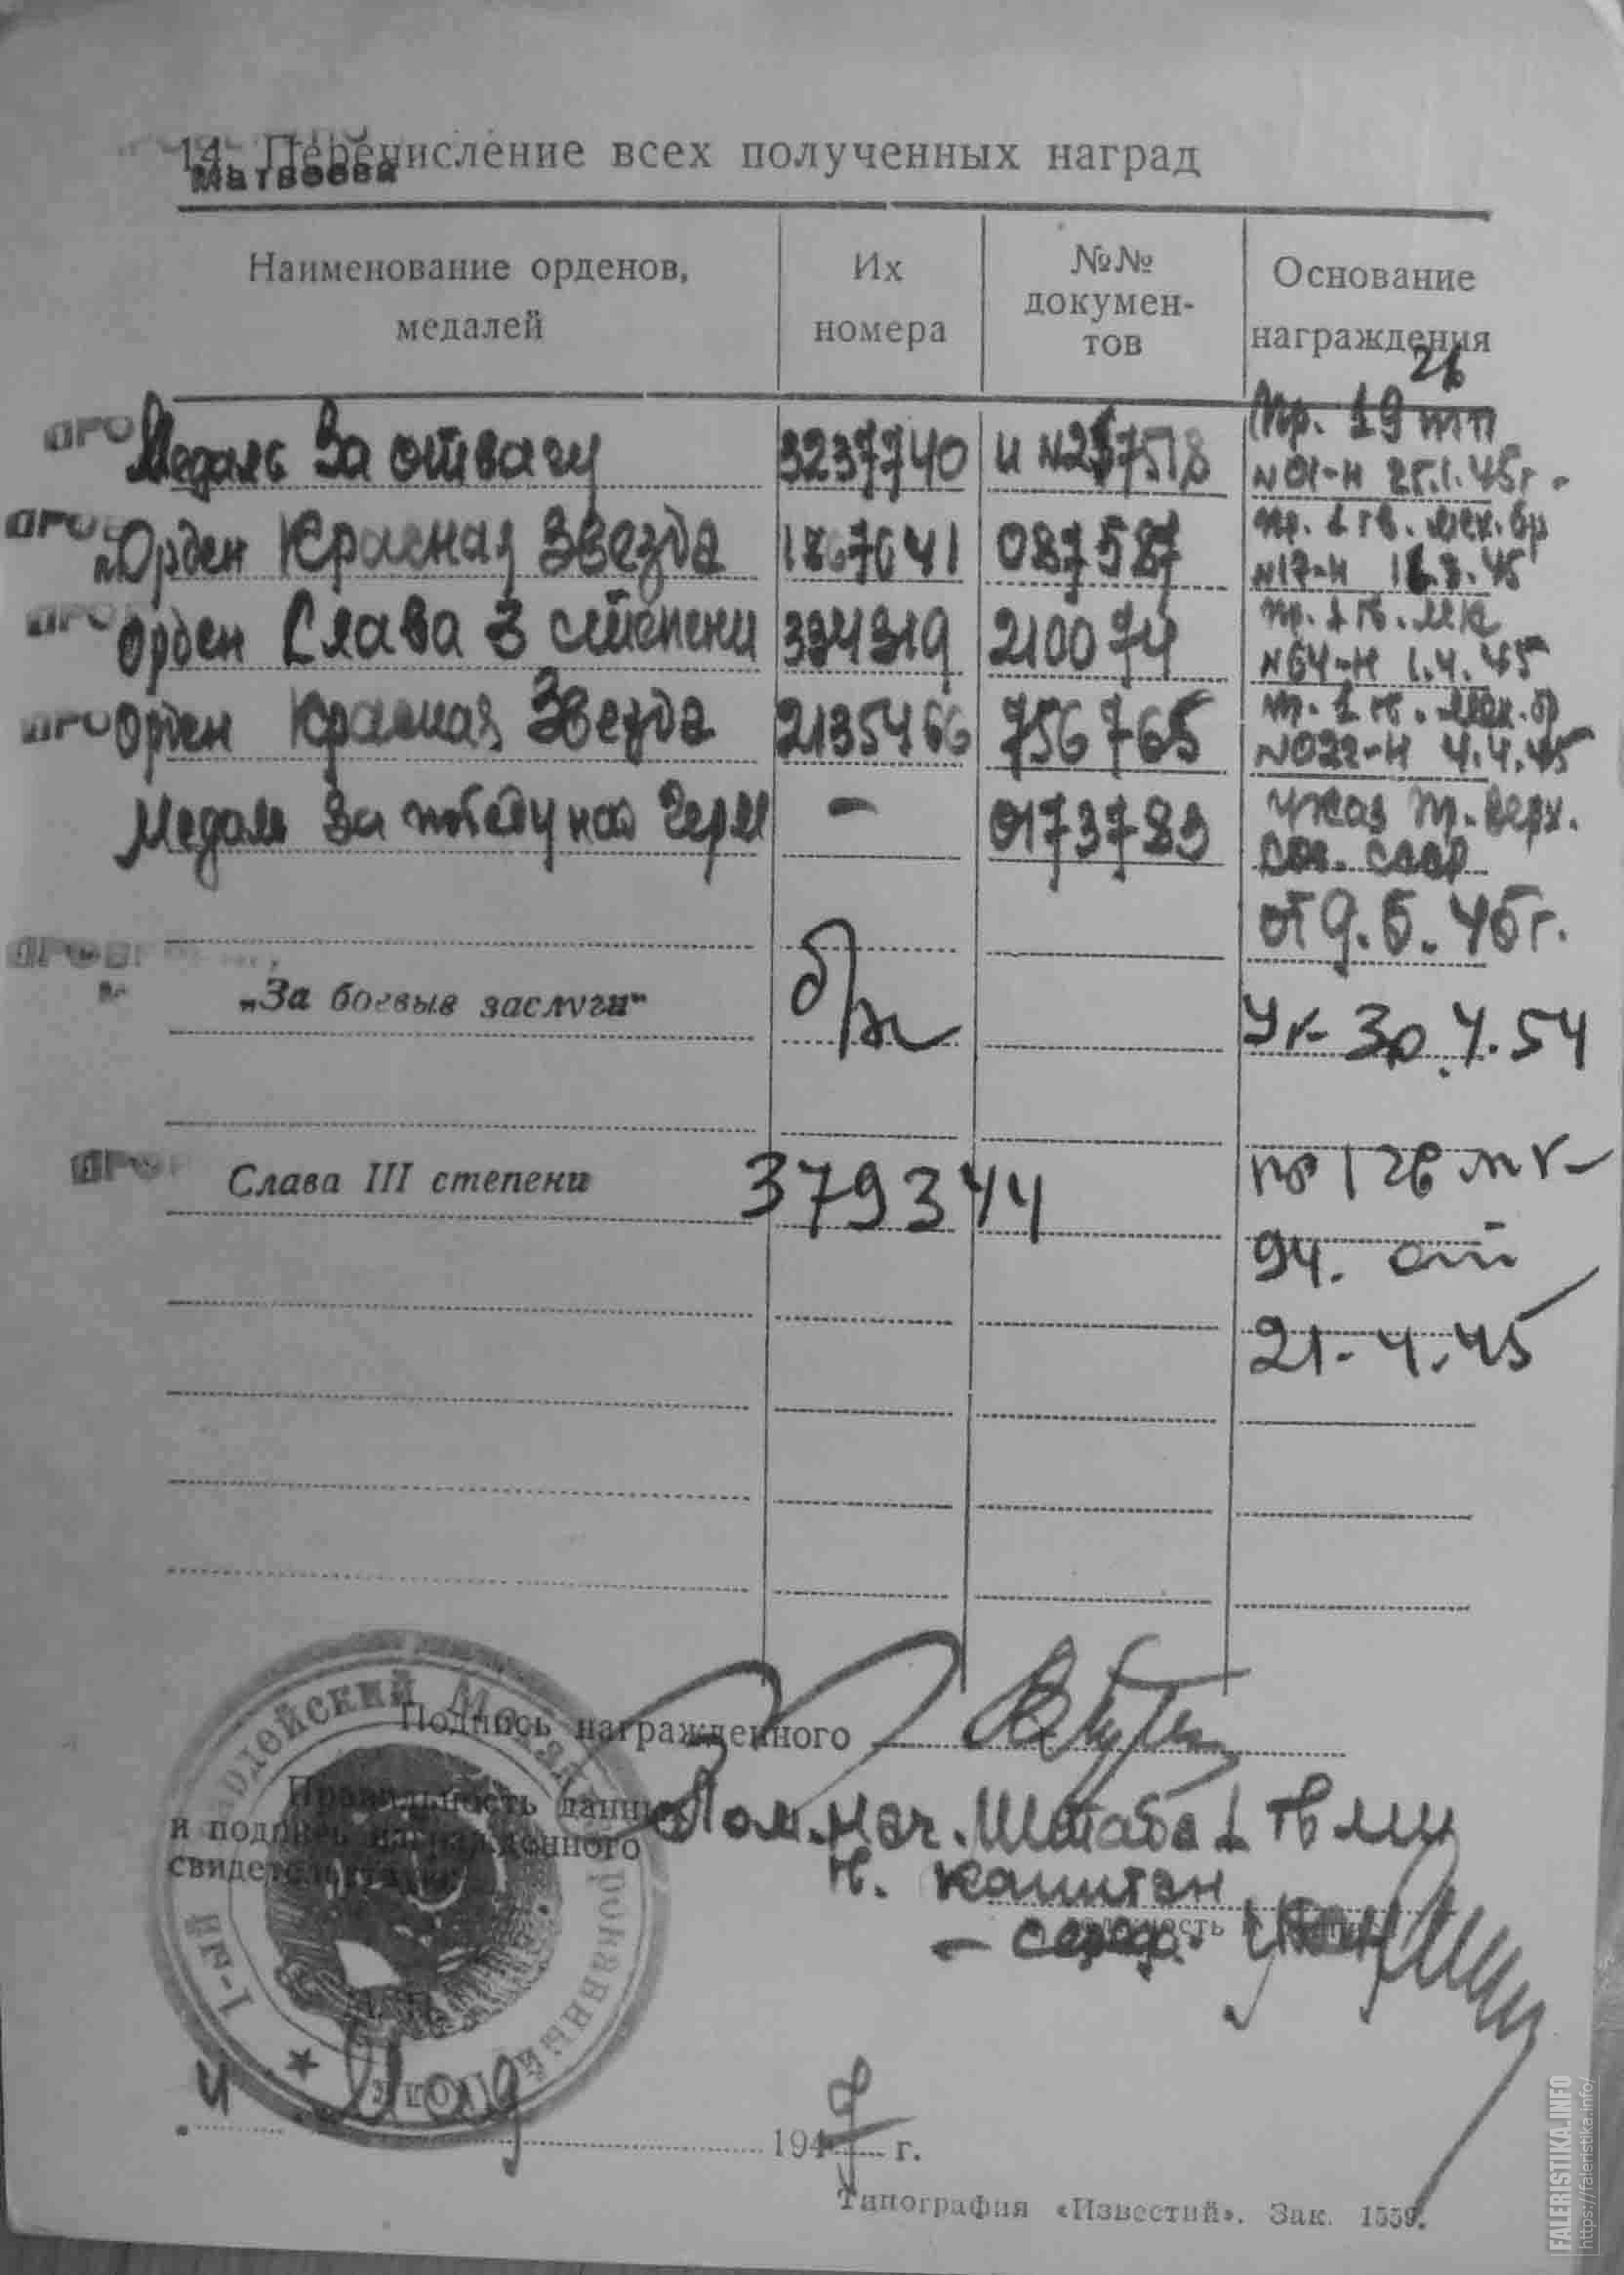 14. Перечисление всех полученных наград
Матвеева
Наименование орденов,
медалей
Их
номера
№№
докумен-
тов
Основание
награждения
Медаль За отвагу 3237740
пр. 19 тп
№01-н 25.1.45г.
Орден Красная Звезда 1867641 087587
пр. 1 гв. мех. бр
№17-н 3.45
Орден Слава 3 степени 394319 210074
пр. 1 гв. мк
№64-н 1.4.45
Орден Красная Звезда 2135466 756765
пр. 1 гв. мех. бр
№022-н 4.4.45
Медаль За победу над Герм – 0173783
Указ пр. Верх.
Сов. СССР
от 9.5.45г.
„За боевые заслуги“ б/н Ук 30.4.54
Слава III степени 379344
пр 1 гв мк
94. от
21.4.45
Подпись награжденного
Правильность данных
и подпись награжденного
свидетельствую:
Пом. Нач. Штаба 1 гв мп
гв. капитан
1-ый Гвардейский Механизированный Полк
4 194 7 г.
Типография «Известий». Зак. 1559.
FALERISTIKA.INFO
https://faleristika.info/